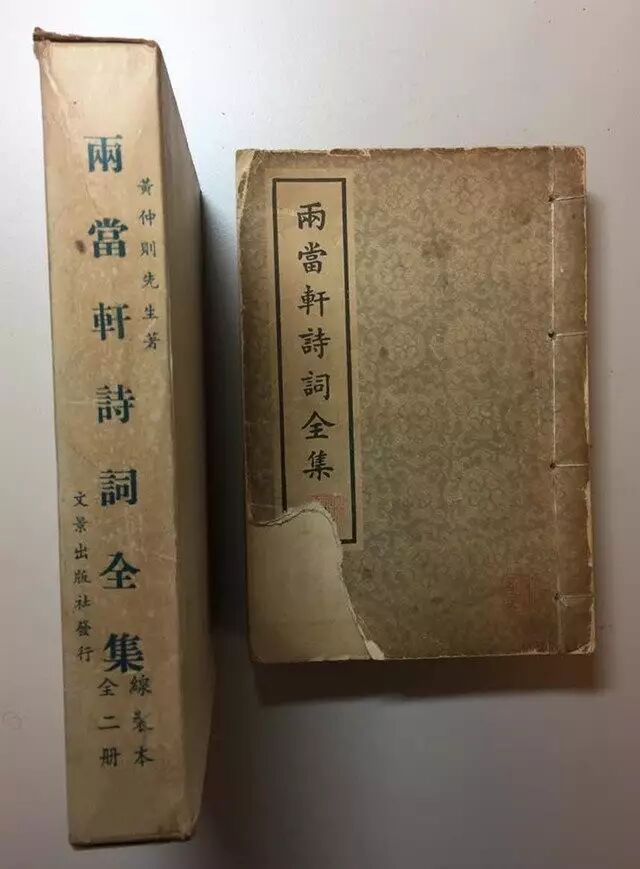 黃仲則先生著
兩當軒詩詞全集
文景出版社發行
線裝本
全二册
兩當軒詩詞全集